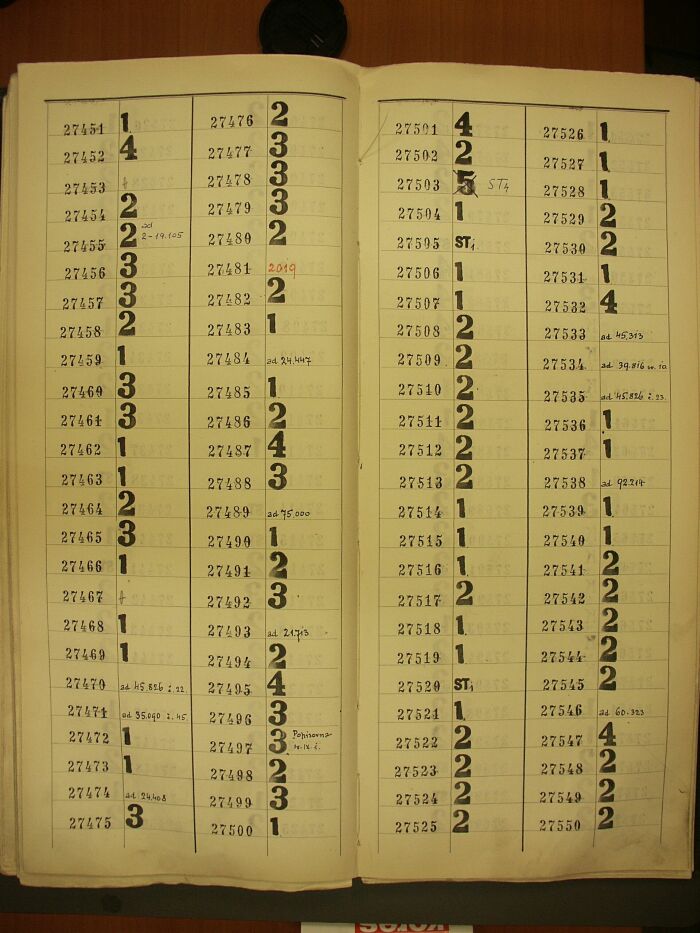 27451 1
27452 4
27453
27454 2
27455 2 ad 2-19.105
27456 3
27457 3
27458 2
27459 1
27460 3
27461 3
27462 1
27463 1
27464 2
27465 3
27466 1
27467
27468 1
27469 1
27470 ad 45.826 i. 22.
27471 ad 35.090 i. 45.
27472 1
27473 1
27474 ad 24.408
27475 3
27476 2
27477 3
27478 3
27479 3
27480 2
27481 2019
27482 2
27483 1
27484 ad 24.447
27485 1
27486 2
27487 4
27488 3
27489 ad 75.000
27490 1
27491 2
27492 3
27493 ad 21.713
27494 2
27495 4
27496 3
27497 3
27498 2
27499 3
27500 1
27501 4
27502 2
27503 5 ST4
27504 1
27505 ST1
27506 1
27507 1
27508 2
27509 2
27510 2
27511 2
27512 2
27513 2
27514 1
27515 1
27516 1
27517 2
27518 1
27519 1
27520 ST1
27521 1
27522 2
27523 2
27524 2
27525 2
27526 1
27527 1
27528 1
27529 2
27530 2
27531 1
27532 4
27533 ad 45.313
27534 ad 39.816
27535 ad 45.826 i. 23.
27536 1
27537 1
27538 ad 92.214
27539 1
27540 1
27541 2
27542 2
27543 2
27544 2
27545 2
27546 ad 60.323
27547 4
27548 2
27549 2
27550 2